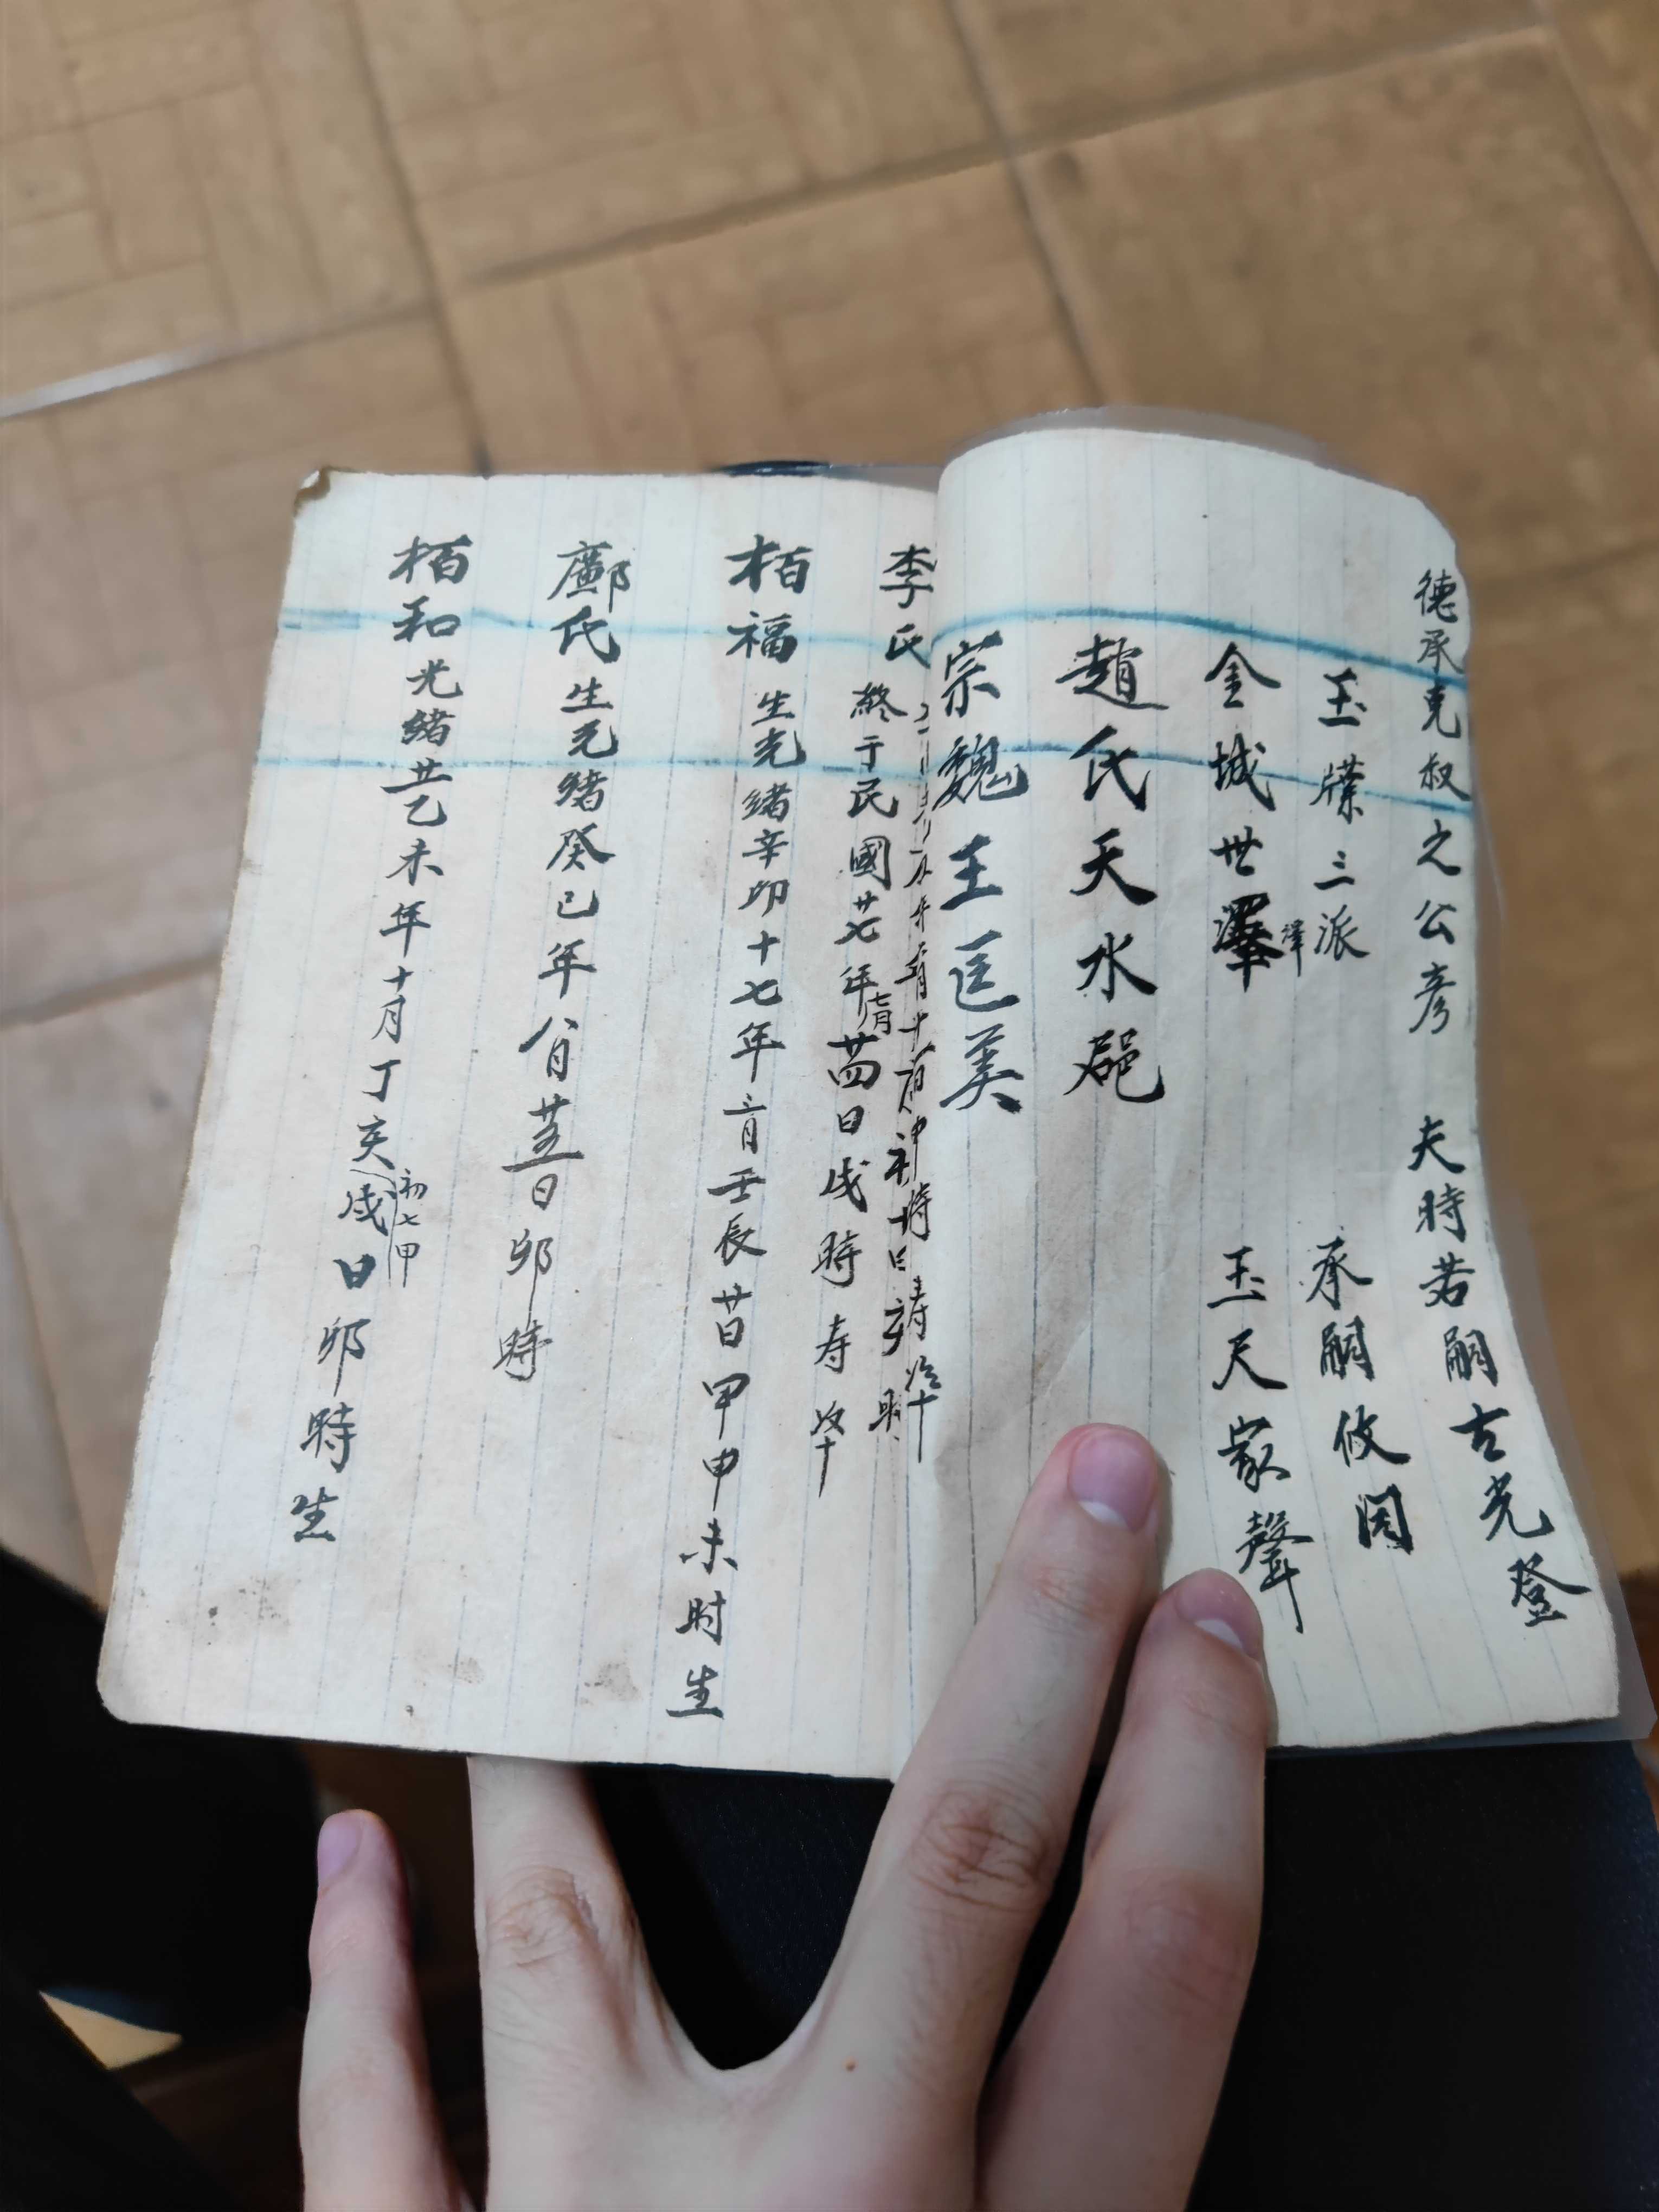 德承克叔之公彥 夫時若嗣古光登
玉牒三派 承嗣攸因
金城世澤澤 玉尺家聲
趙氏天水郡
宗魏王匡美
李氏 終于民國廿七年七月廿四日戌時壽
栢福 生光緒辛卯十七年二月壬辰廿日甲申未时生
鄺氏 生光緒癸巳年八月廿五日卯時
栢和 光緒廿一乙未年十月丁亥初七甲戌日卯時生